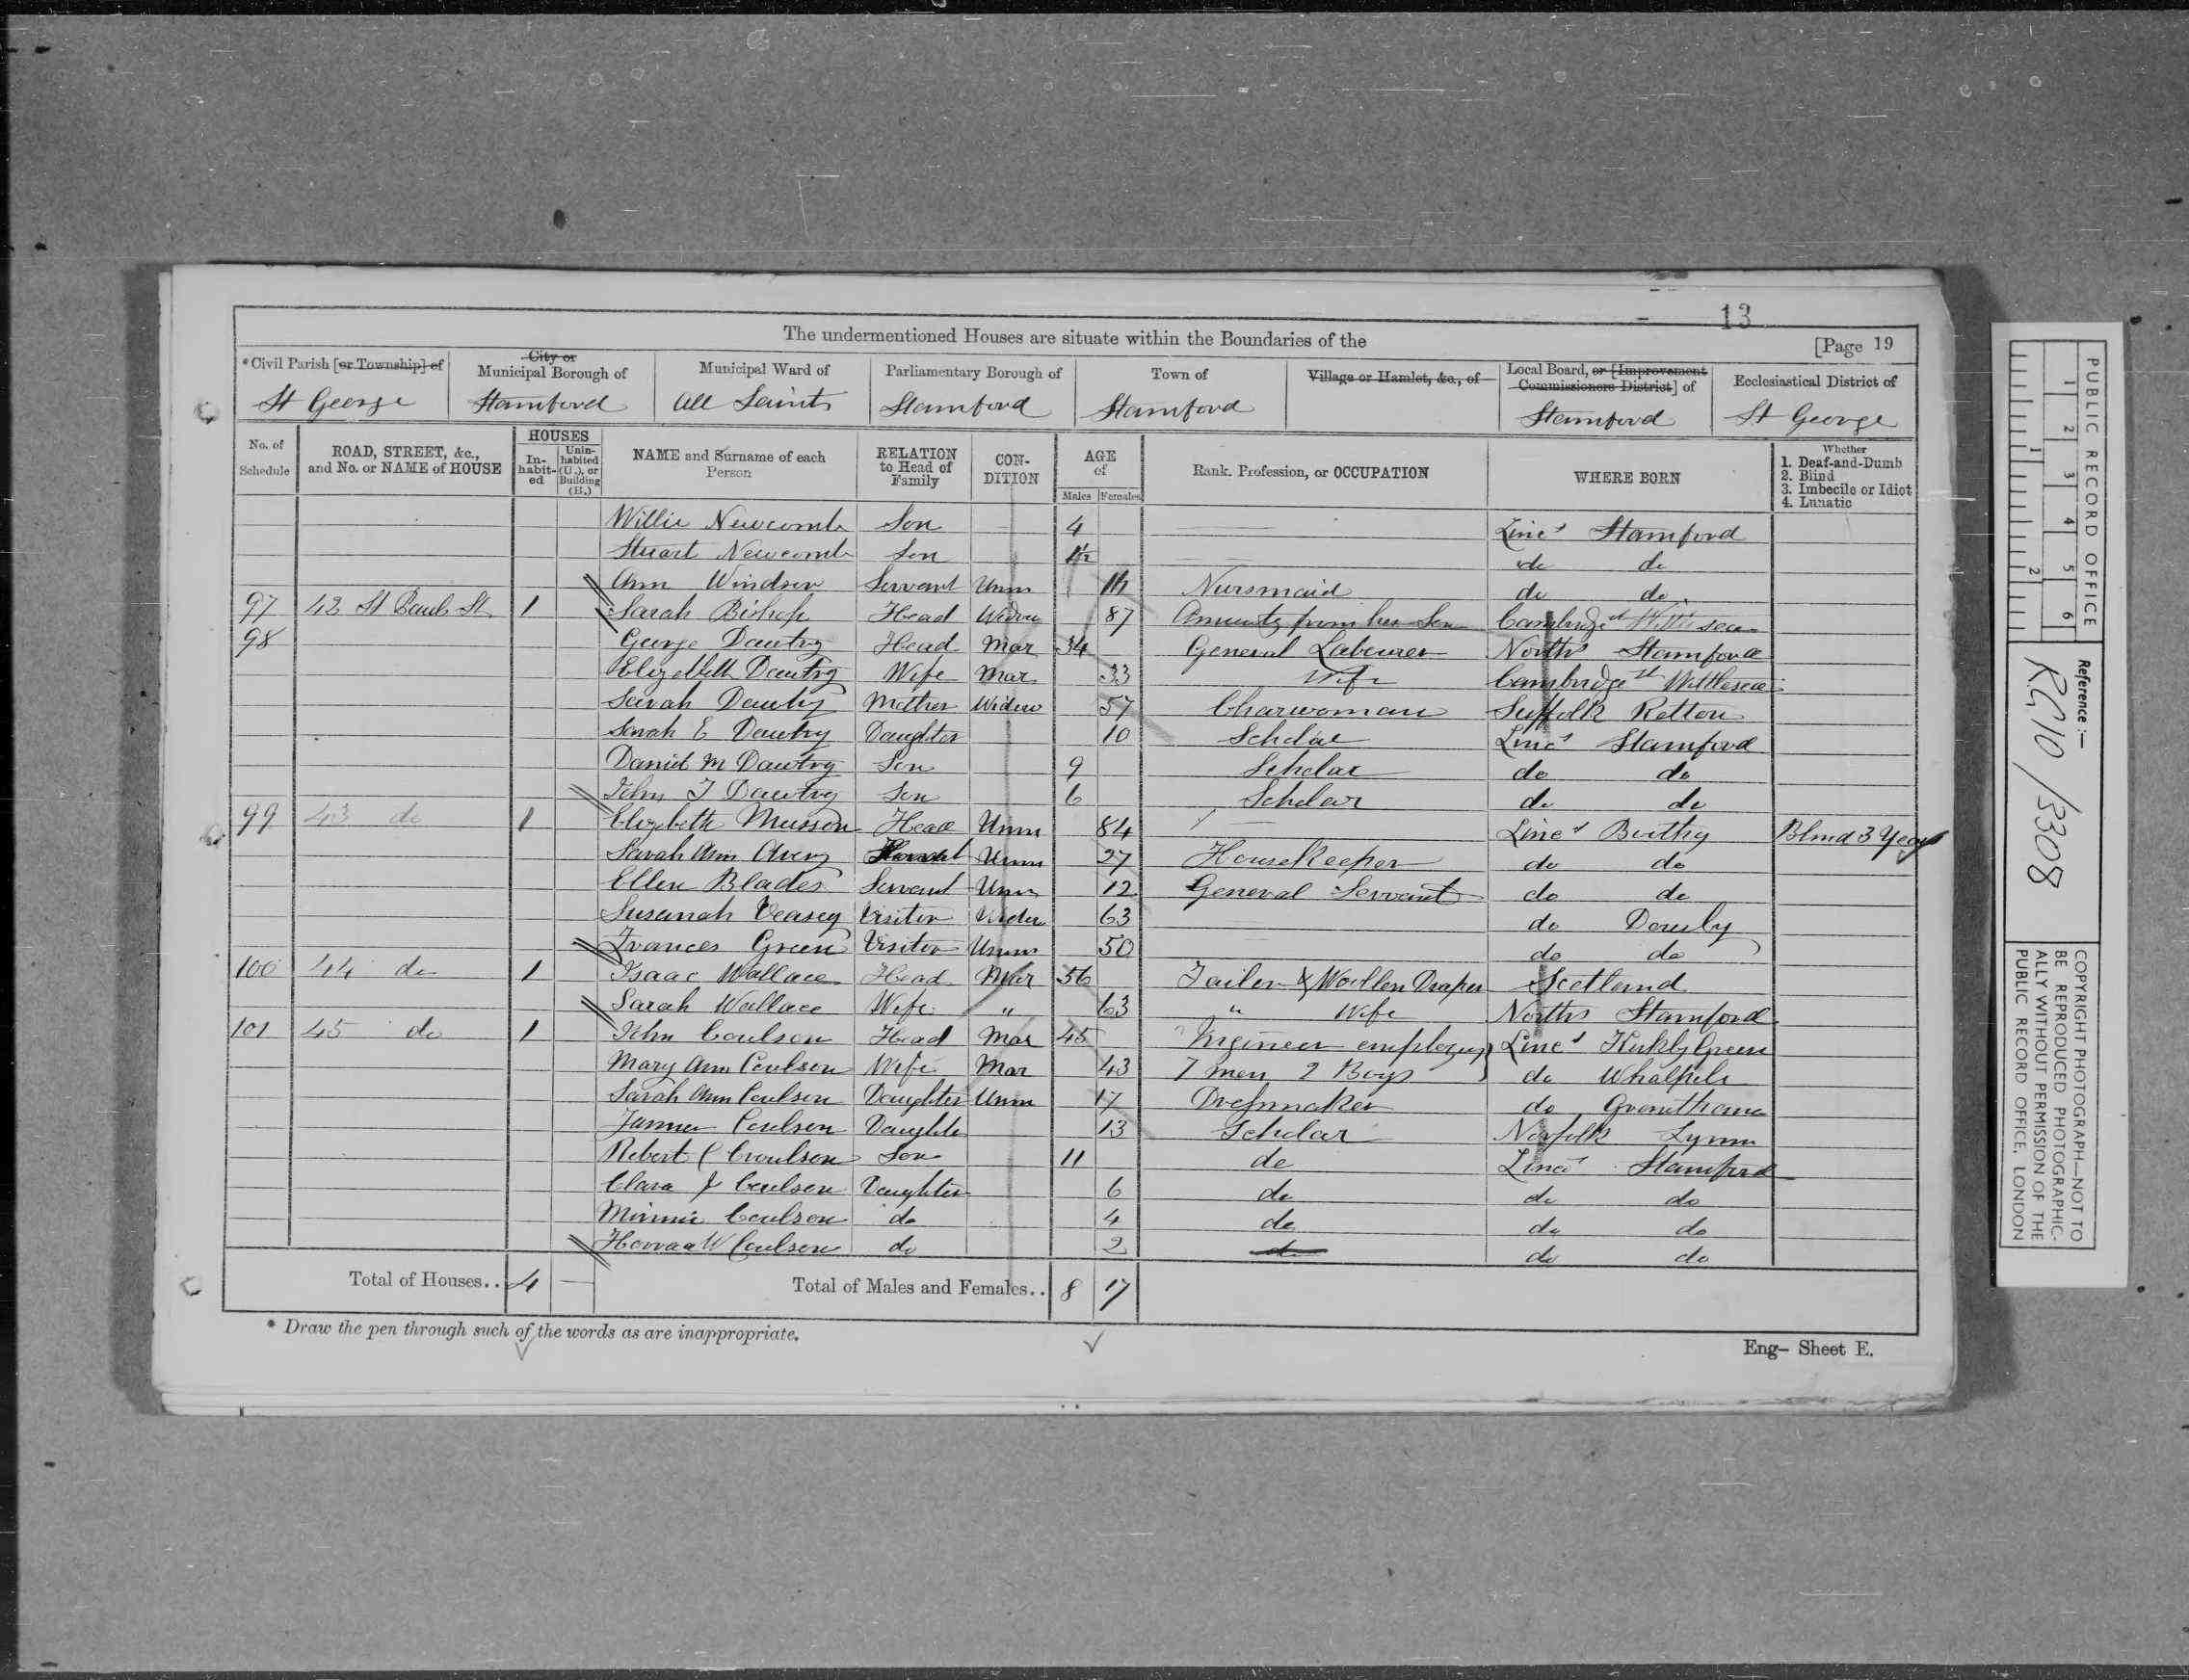 13
The undermentioned Houses are situate within the Boundaries of the
[Page 19
* Civil Parish [or Township] of
City or Municipal Borough of
Municipal Ward of
Parliamentary Borough of
Town of
Village or Hamlet, &c., of
Local Board, or [Improvement Commissioners District] of
Ecclesiastical District of
St George Stamford All Saints Stamford Stamford Stamford St George
No. of Schedule
ROAD, STREET, &c., and No. or NAME of HOUSE
HOUSES
In-habit-ed
Unin-habited (U.), or Building (B.)
NAME and Surname of each Person
RELATION to Head of Family
CON-DITION
AGE of
Males Females
Rank, Profession, or OCCUPATION
WHERE BORN
Whether
1. Deaf-and-Dumb
2. Blind
3. Imbecile or Idiot
4. Lunatic
Willie Newcomb Son 4 Linc's Stamford
Stuart Newcomb Son do do
Ann Windsor Servant Unm Nursmaid do do
97 42 St Pauls St 1 Sarah Bishop Head Widow 87 Annuity from her Son Cambridge
98 George Dawtry Head Mar 34 General Labourer Norths Stamford
Elizabeth Dawtry Wife Mar 33 Wife Cambridge Wittlesea
Sarah Dawtry Mother Widow 57 Charwoman Suffolk
Sarah E Dawtry Daughter 10 Scholar Linc's Stamford
Daniel M Dawtry Son 9 Scholar do do
John T Dawtry Son 6 Scholar do do
99 43 do 1 Elizebeth Musson Head Unm 84 Linc's Blind 3 Years
Sarah Ann Unm 27 HouseKeeper do do
Ellen Blades Servant Unm 12 General Servant do do
Susanah Veasey Visitor Widow 63 do
Frances Green Visitor Unm 50 do do
100 44 do 1 Isaac Wallace Head Mar 56 Tailor & Woollen Draper Scotland
Sarah Wallace Wife " 63 " Wife Norths Stamford
101 45 do 1 John Coulson Head Mar 45 Engineer employing Linc's Kirkby Green
Mary Ann Coulson Wife Mar 43 7 men 2 Boys do
Sarah Ann Coulson Daughter Unm 17 Dressmaker do
Coulson Daughter 13 Scholar Norfolk Lynn
Robert C Croulson Son 11 do Linc's Stamford
Clara J Coulson Daughter 6 do do do
Minnie Coulson do 4 do do do
W Coulson do 2 do do do
Total of Houses.. 4 — Total of Males and Females.. 8 17
* Draw the pen through such of the words as are inappropriate.
Eng- Sheet E.
PUBLIC RECORD OFFICE
1 2 3 4 5 6
1 2
Reference:—
RG10/3308
COPYRIGHT PHOTOGRAPH—NOT TO
BE REPRODUCED PHOTOGRAPHIC-
ALLY WITHOUT PERMISSION OF THE
PUBLIC RECORD OFFICE, LONDON